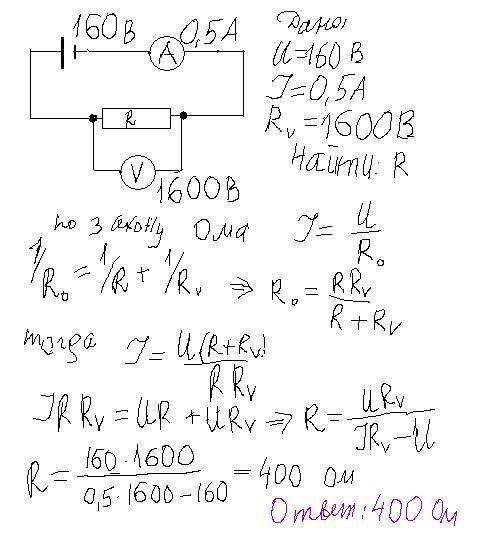 160 В 0,5 А
A
R
V
1600 В
Дано:
U=160 В
J=0,5А
Rv=1600В
Найти: R
по закону Ома J = U/R₀
1/R₀ = 1/R + 1/Rv ⇒ R₀ = RRv/R+Rv
тогда J = U(R+Rv)/RRv
JRRv = UR + URv ⇒ R = URv/JRv-U
R = 160·1600/0,5·1600-160 = 400 ом
Ответ: 400 Ом